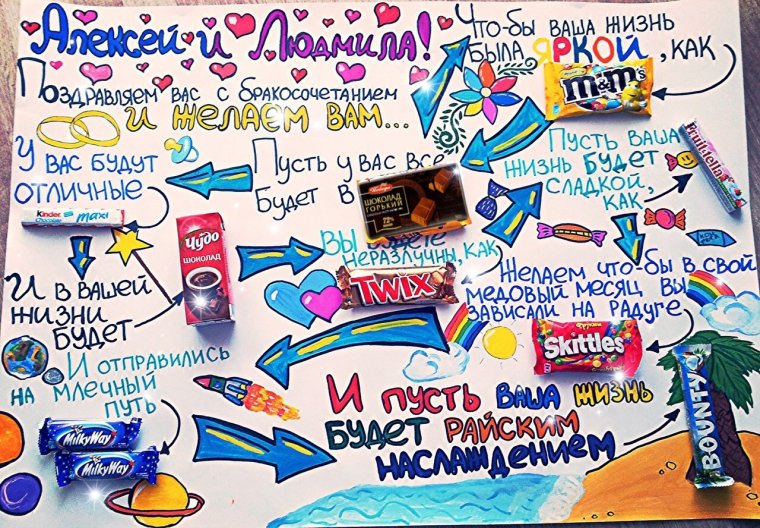 Алексей и Людмила!
Поздравляем вас с бракосочетанием
и желаем вам...
Что-бы ваша жизнь
была яркой, как
m&m's
Пусть ваша
жизнь будет
сладкой,
как
Fruittella
Пусть у вас все
будет в
ШОКОЛАД
ГОРЬКИЙ
72%
У вас будут
отличные
Kinder
Chocolate
maxi
И в вашей
жизни
будет
Чудо
ШОКОЛАД
Вы будете
неразлучны, как
TWIX
Желаем что-бы в свой
медовый месяц вы
зависали на радуге
Фрукты
Skittles
И отправились
на млечный
путь
MilkyWay
MilkyWay
И пусть ваша жизнь
будет райским
наслаждением
BOUNTY